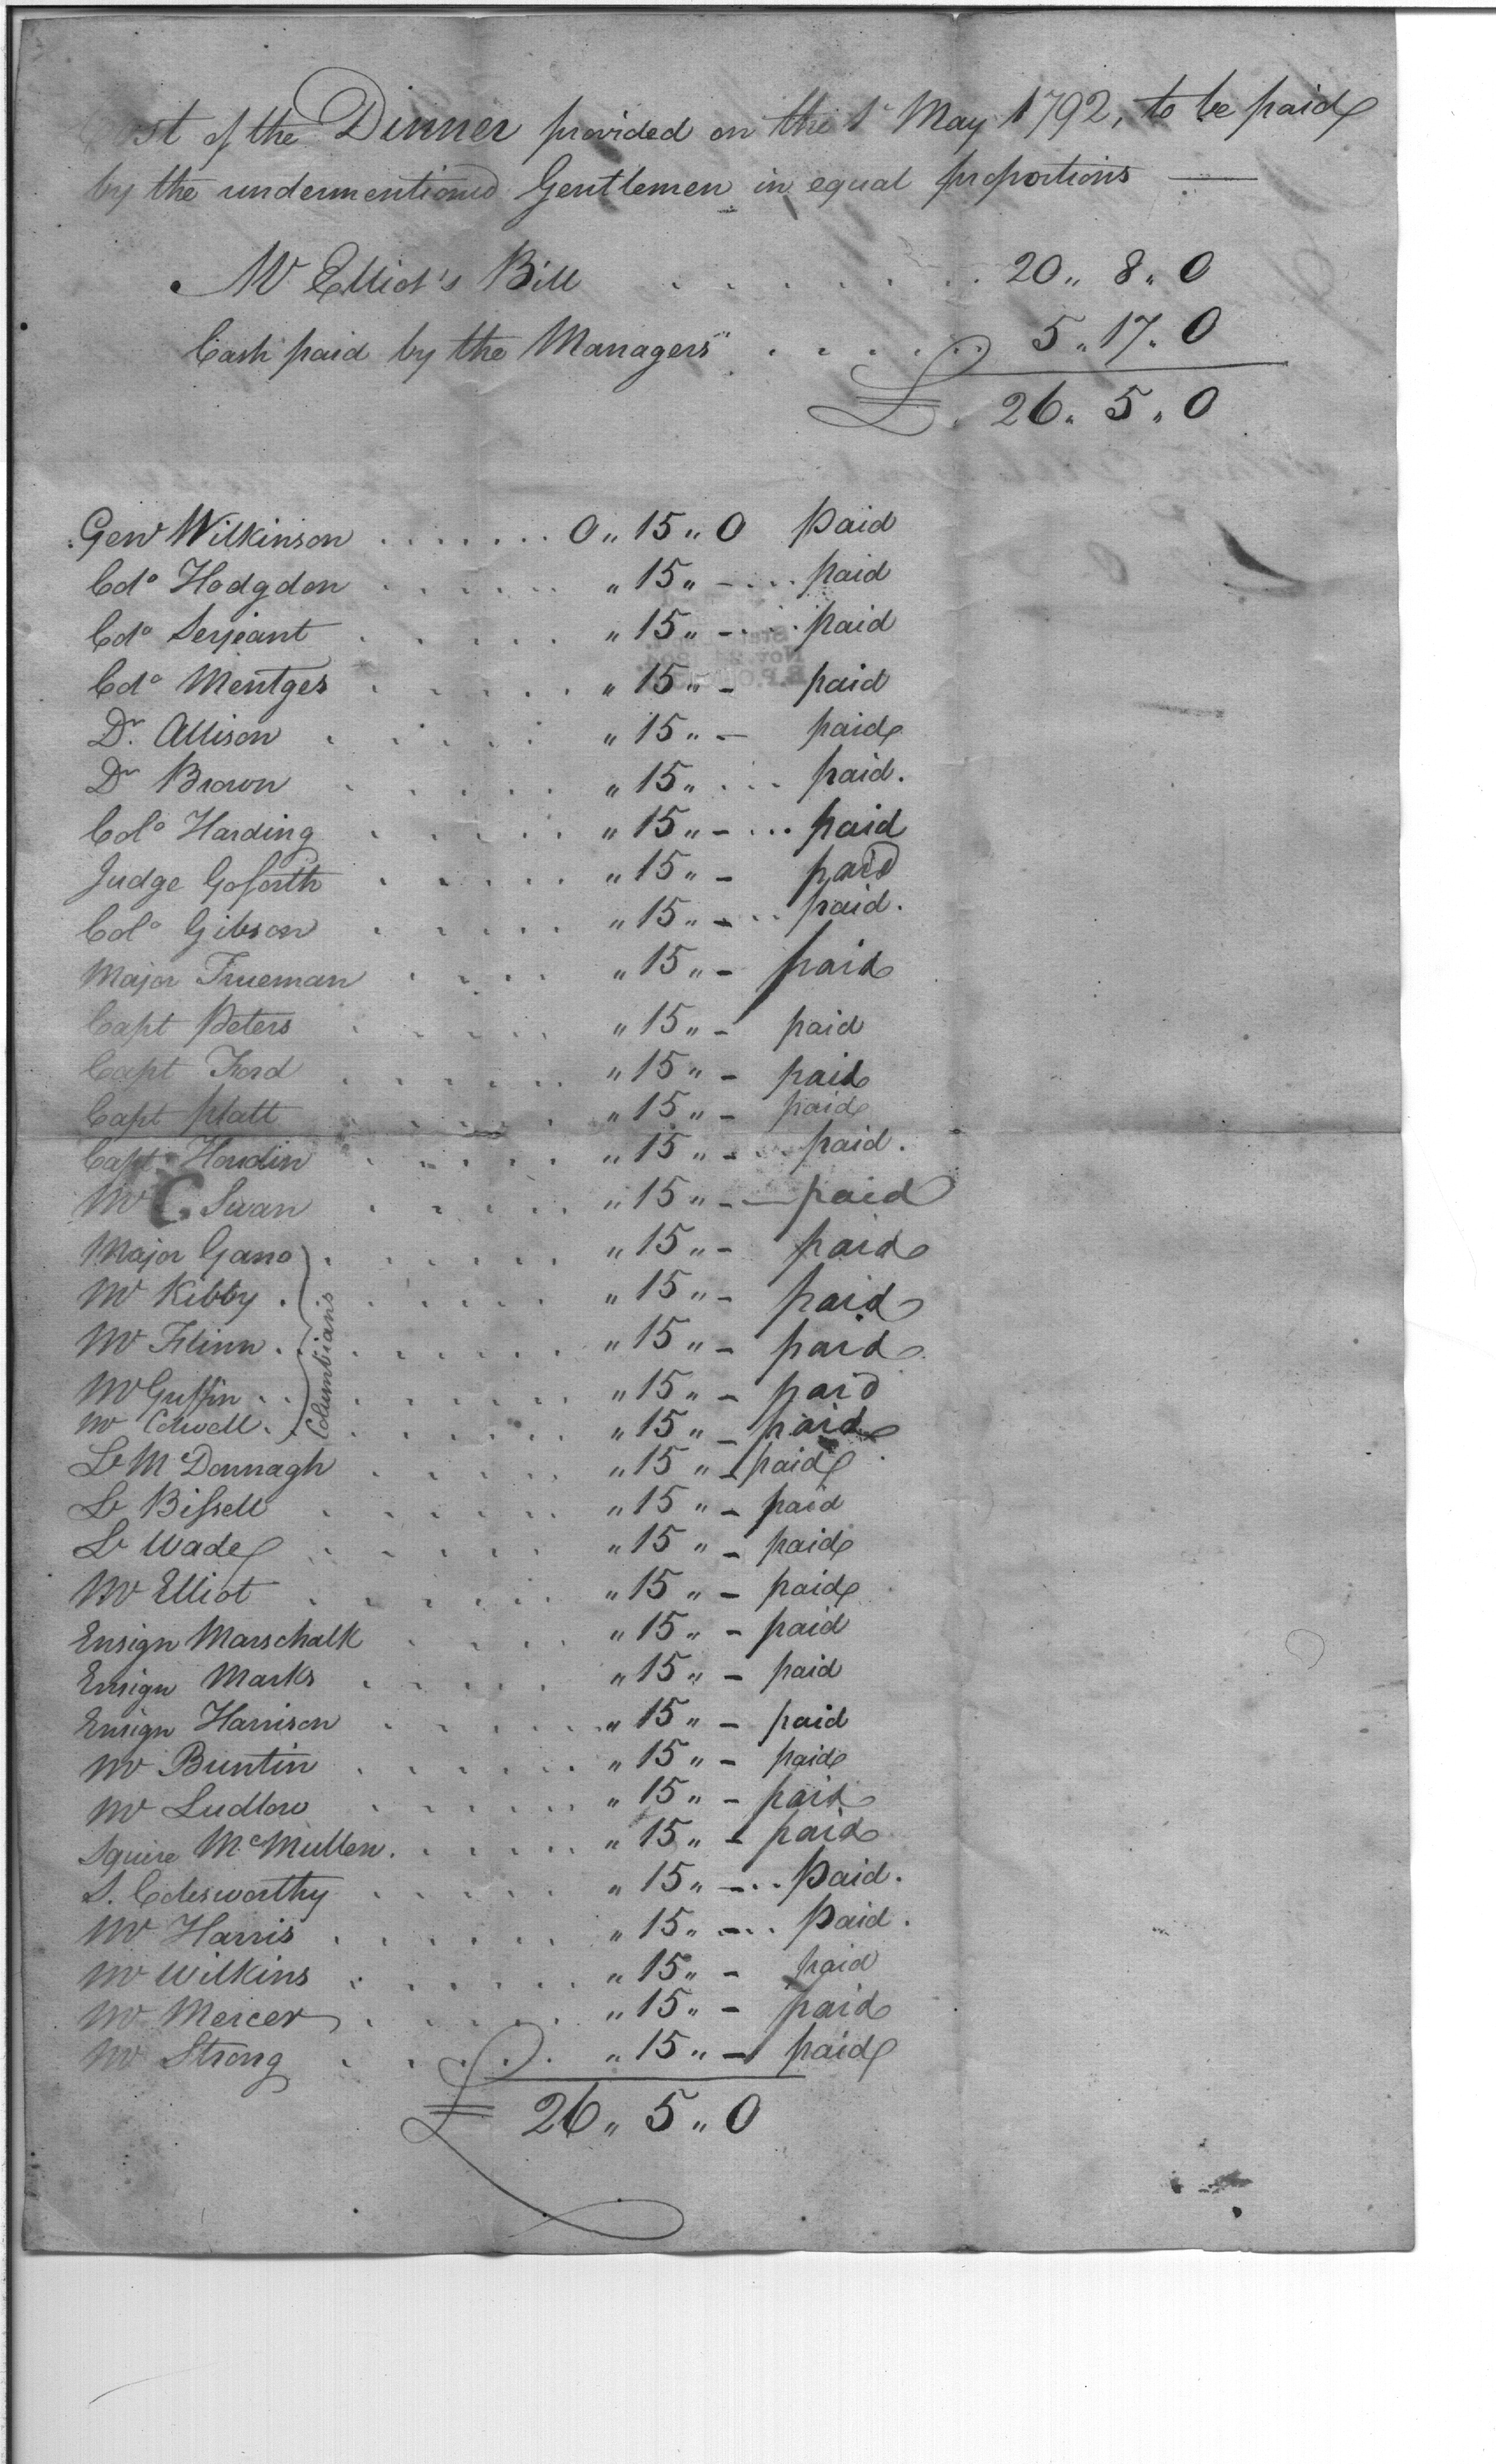 st of the Dinner provided on the 1st May 1792, to be paid
by the undermentioned Gentlemen in equal proportions —
Mr Elliot's Bill . . . . . . . 20 „ 8 „ 0
Cash paid by the Managers . . . . . 5 „ 17 „ 0
£ . 26 „ 5 „ 0
Genl Wilkinson . . . . . . . 0 „ 15 „ 0 paid
Colo Hodgdon . . . . . . „ 15 „ - . . . paid
Colo Serjeant . . . . . „ 15 „ - . . . paid
Colo Mentges . . . . . „ 15 „ - paid
Dr. Allison . . . . . „ 15 „ - paid
Dr Brown . . . . . „ 15 „ . . . paid.
Colo Harding . . . . . „ 15 „ - . . . paid
Judge Goforth . . . . . „ 15 „ - paid
Colo Gibson . . . . . „ 15 „ - . . paid.
Major Trueman . . . . „ 15 „ - paid
Capt Peters . . . . . „ 15 „ - paid
Capt Ford . . . . . . „ 15 „ - paid
Capt Platt . . . . . „ 15 „ - paid
Capt Howdin . . . . . „ 15 „ - . . paid.
Mr C. Swan . . . . . „ 15 „ - — paid
Major Gano . . . . . . „ 15 „ - paid
Mr Kibby . . . . . . „ 15 „ - paid
Mr Flinn . . . . . . . „ 15 „ - paid
Mr Griffin . . . . . . . „ 15 „ - paid
Mr Colwell . . . . . . . „ 15 „ - paid
Columbians
Lt McDonnagh . . . . . „ 15 „ - paid
Lt Bissell . . . . . . „ 15 „ - paid
Lt Wade . . . . . „ 15 „ - paid
Mr Elliot . . . . . . „ 15 „ - paid
Ensign Marschalk . . . . „ 15 „ - paid
Ensign Marks . . . . . „ 15 „ - paid
Ensign Harrison . . . . . „ 15 „ - paid
Mr Buntin . . . . . . „ 15 „ - paid
Mr Ludlow . . . . . . „ 15 „ - paid
Squire McMullen . . . . . . „ 15 „ - paid
S. Colesworthy . . . . . „ 15 „ - . . paid.
Mr Harris . . . . . . „ 15 „ - . . paid.
Mr Wilkins . . . . . . „ 15 „ - paid
Mr Mercer . . . . . „ 15 „ - paid
Mr Strong . . . . . „ 15 „ - paid
£ 26 „ 5 „ 0